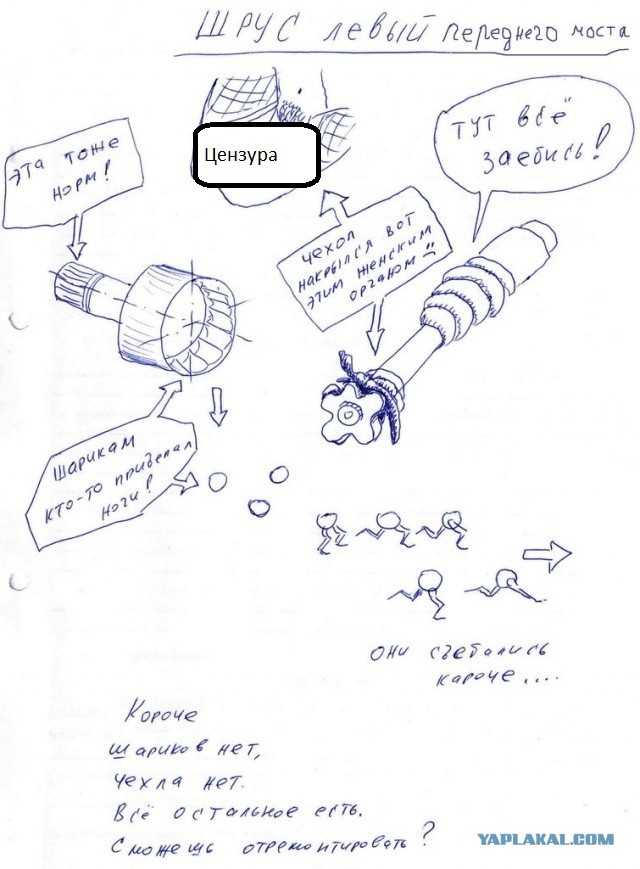 ШРУС левый переднего моста
Цензура
ТУТ всё
заебись!
Эта тоже
норм!
чехол
накрылся вот
этим женским
органом
Шарикам
кто-то приделал
ноги!
они съебались
кароче....
Короче
шариков нет,
чехла нет.
Всё остальное есть.
Сможешь отремонтировать?
YAPLAKAL.COM